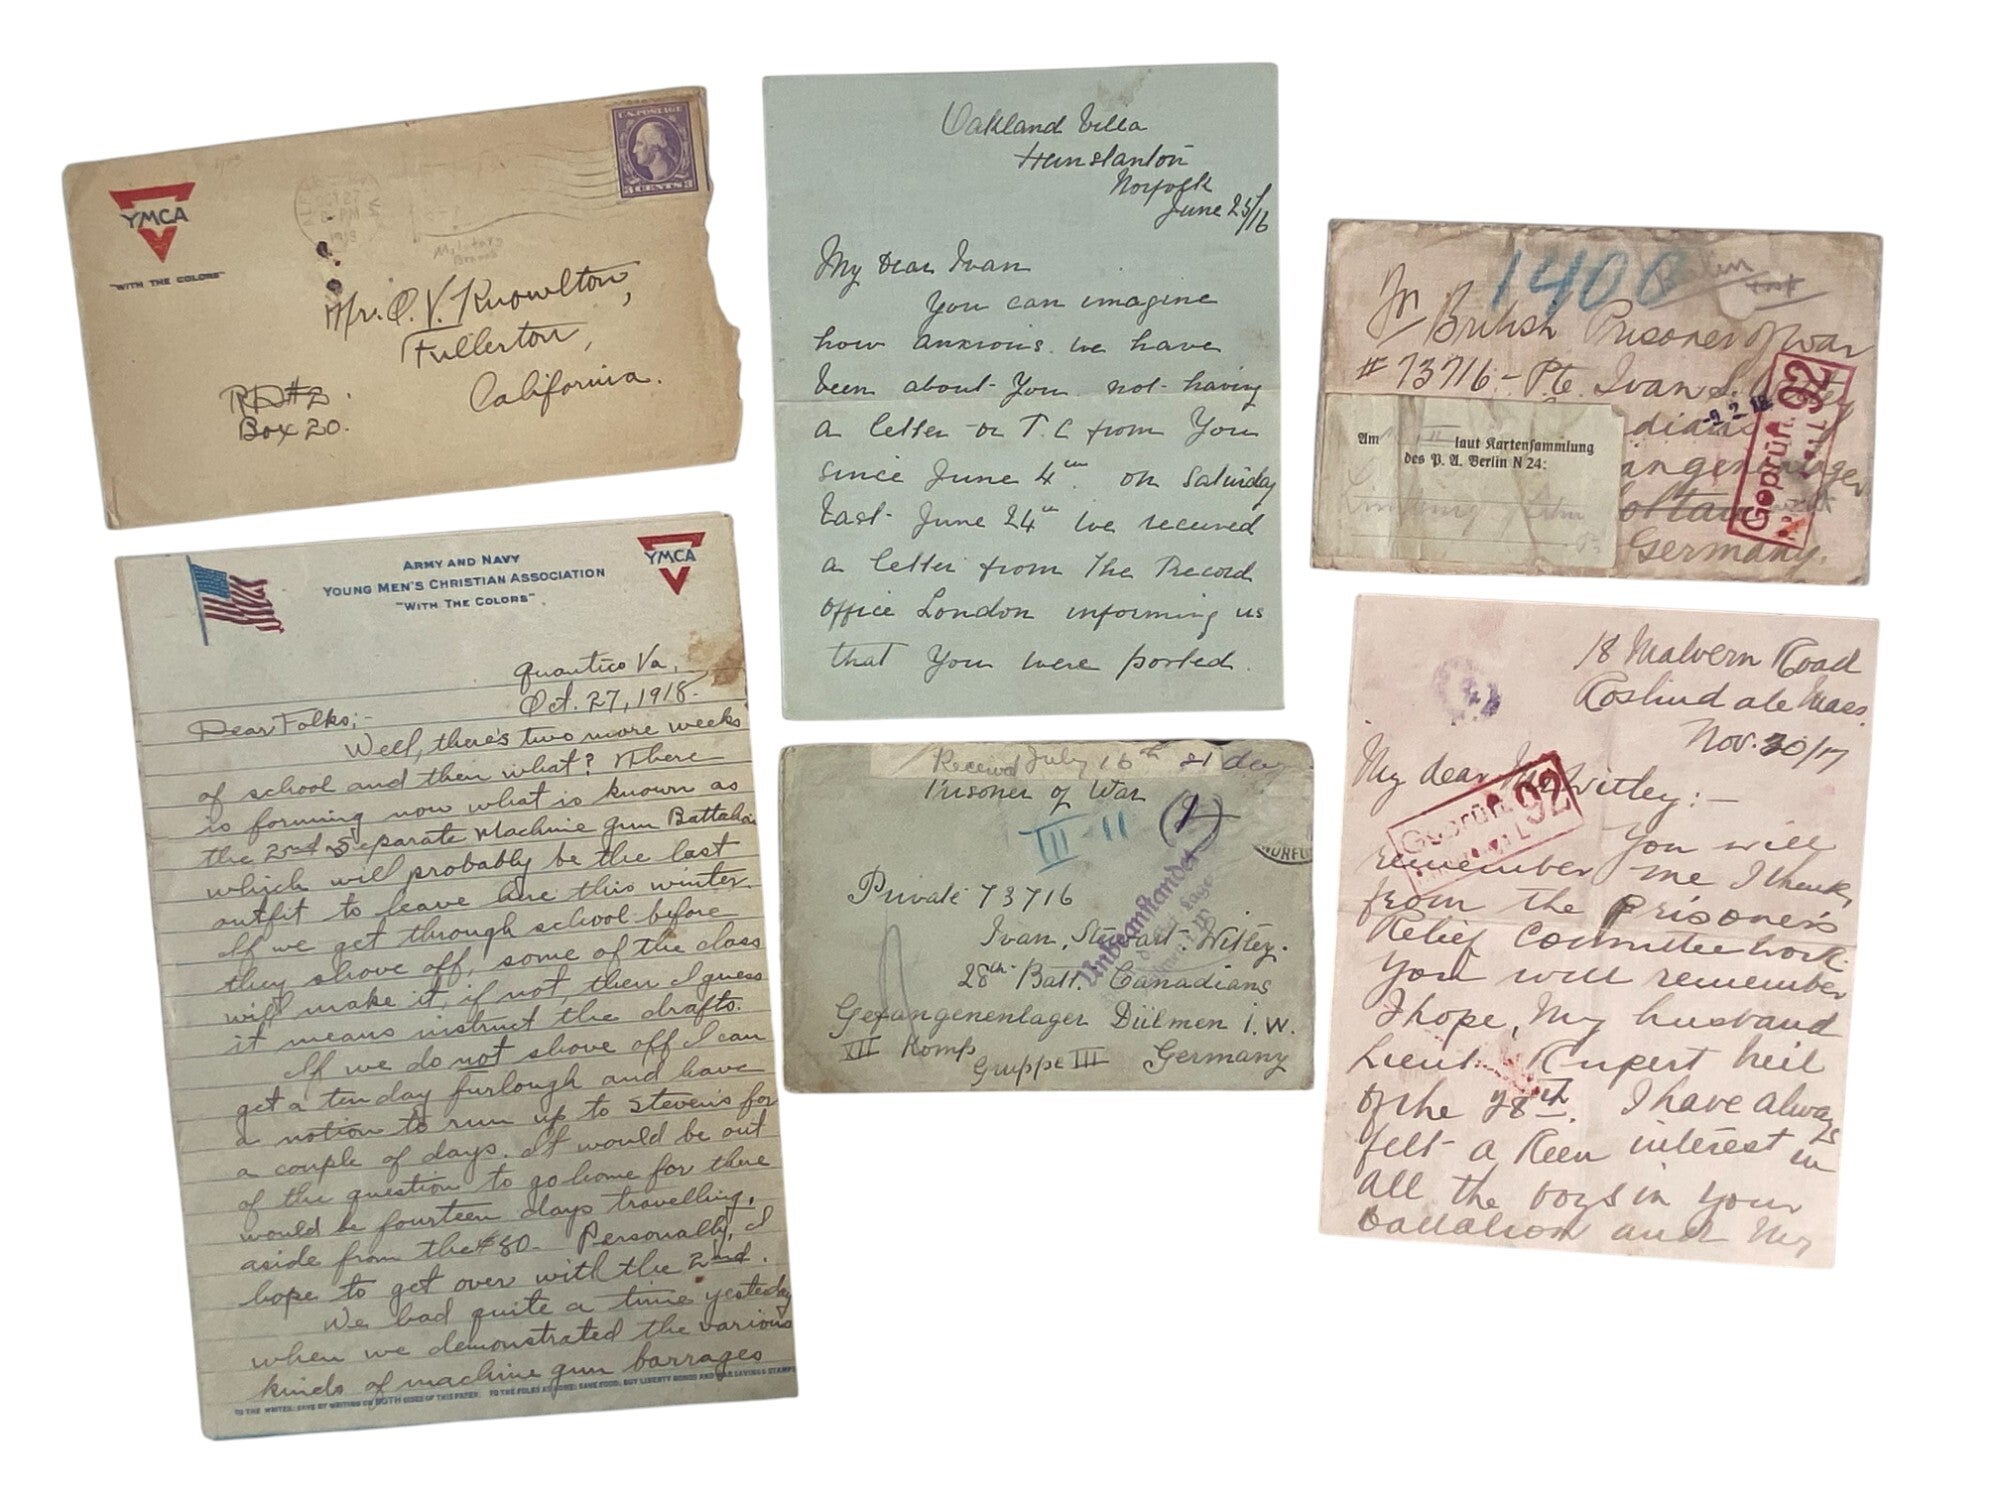 YMCA
"WITH THE COLORS"
U.S. POSTAGE
3 CENTS 3
Military
Branch
Mr. O. V. Knowlton,
Fullerton,
California.
RD #2.
Box 20.
ARMY AND NAVY
YOUNG MEN'S CHRISTIAN ASSOCIATION
"WITH THE COLORS"
YMCA
Quantico Va,
Oct. 27, 1918.
Dear Folks;-
Well, there's two more weeks
of school and then what? There
is forming now what is known as
the 2nd Separate Machine Gun Battalion
which will probably be the last
outfit to leave here this winter.
If we get through school before
they shove off, some of the class
will make it, if not, then I guess
it means instruct the drafts.
If we do not shove off I can
get a ten day furlough and have
a notion to run up to Steven's for
a couple of days. It would be out
of the question to go home for there
would be fourteen days travelling,
aside from the $80. Personally, I
hope to get over with the 2nd.
We had quite a time yesterday
when we demonstrated the various
kinds of machine gun barrages
TO THE WRITER: SAVE BY WRITING ON BOTH SIDES OF THIS PAPER. TO THE FOLKS AT HOME: SAVE FOOD, BUY LIBERTY BONDS AND WAR SAVINGS STAMPS
Oakland Villa
Hunstanton
Norfolk
June 25/16
My Dear Ivan
You can imagine
how anxious we have
been about You not having
a letter or P.C from You
since June 4th. on Saturday
Last June 24th we received
a letter from The Record
Office London informing us
that You were posted.
Received July 16th 21 days
Prisoner of War
III-11
1
Private 73716
Ivan, Stewart Witley.
28th Batt. Canadians
Unbeanstandet
Gefangenenlager Dülmen i. W.
XII Komp Gruppe III Germany
1400
Berlin
For British Prisoner of War
#73716 - Pte. Ivan S.
-9.2.18
Geprüft. 92
Am laut Kartensammlung
des P. A. Berlin N 24:
Germany.
18 Malvern Road
Roslindale Mass.
Nov. 30/17
My dear Mr Witley:-
Geprüft. 92
You will
remember me I think,
from the Prisoner's
Relief Committee work.
You will remember
I hope, My husband
Lieut. Rupert Neil
of the 28th. I have always
felt a keen interest in
all the boys in your
Battalion and My